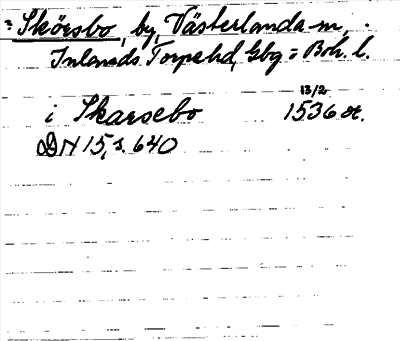 = Skörsbo, by, Västerlanda sn,
Inlands Torpe hd, Gbg = Boh. l.
13/2
i Skarsebo 1536 or.
DN 15, s. 640